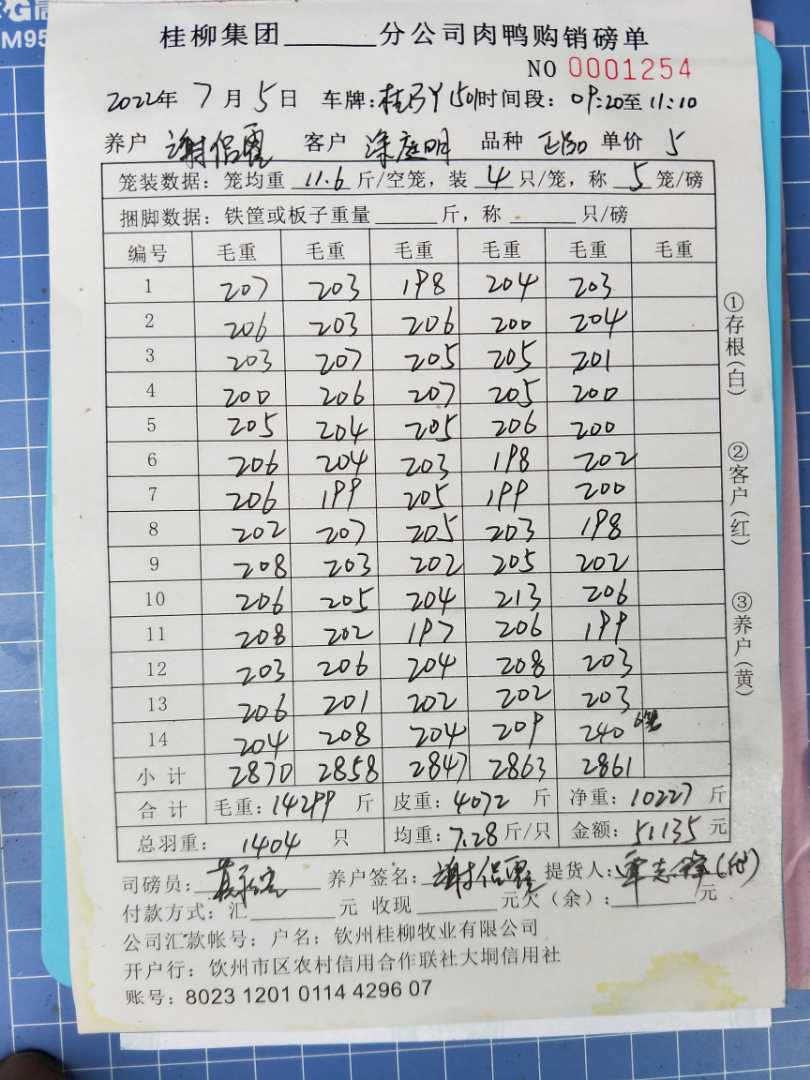 G高
M95
桂柳集团______分公司肉鸭购销磅单
NO 0001254
2022年 7 月 5 日 车牌:桂 Y1501时间段: 09:20至11:10
养户 谢侣霞 客户 涂庭明 品种 单价 5
笼装数据:笼均重 11.6 斤/空笼,装 4 只/笼,称 5 笼/磅
捆脚数据:铁筐或板子重量______斤,称______只/磅
编号 毛重 毛重 毛重 毛重 毛重 毛重
1 207 203 198 204 203
2 206 203 206 200 204
3 203 207 205 205 201
4 200 206 207 205 200
5 205 204 205 206 200
6 206 204 203 198 202
7 206 199 205 199 200
8 202 207 205 203 198
9 208 203 202 205 202
10 206 205 204 213 206
11 208 202 197 206 199
12 203 206 204 208 203
13 206 201 202 202 203
14 204 208 204 209 240 6笼
小计 2870 2858 2847 2863 2861
合计 毛重:14299 斤 皮重:4072 斤 净重:10227 斤
总羽重: 1404 只 均重:7.28斤/只 金额:51135元
司磅员: 养户签名:谢侣霞 提货人:覃志锋(代)
付款方式:汇________元 收现________元欠(余):________元
公司汇款帐号:户名:钦州桂柳牧业有限公司
开户行:钦州市区农村信用合作联社大垌信用社
账号:8023 1201 0114 4296 07
①存根(白)
②客户(红)
③养户(黄)